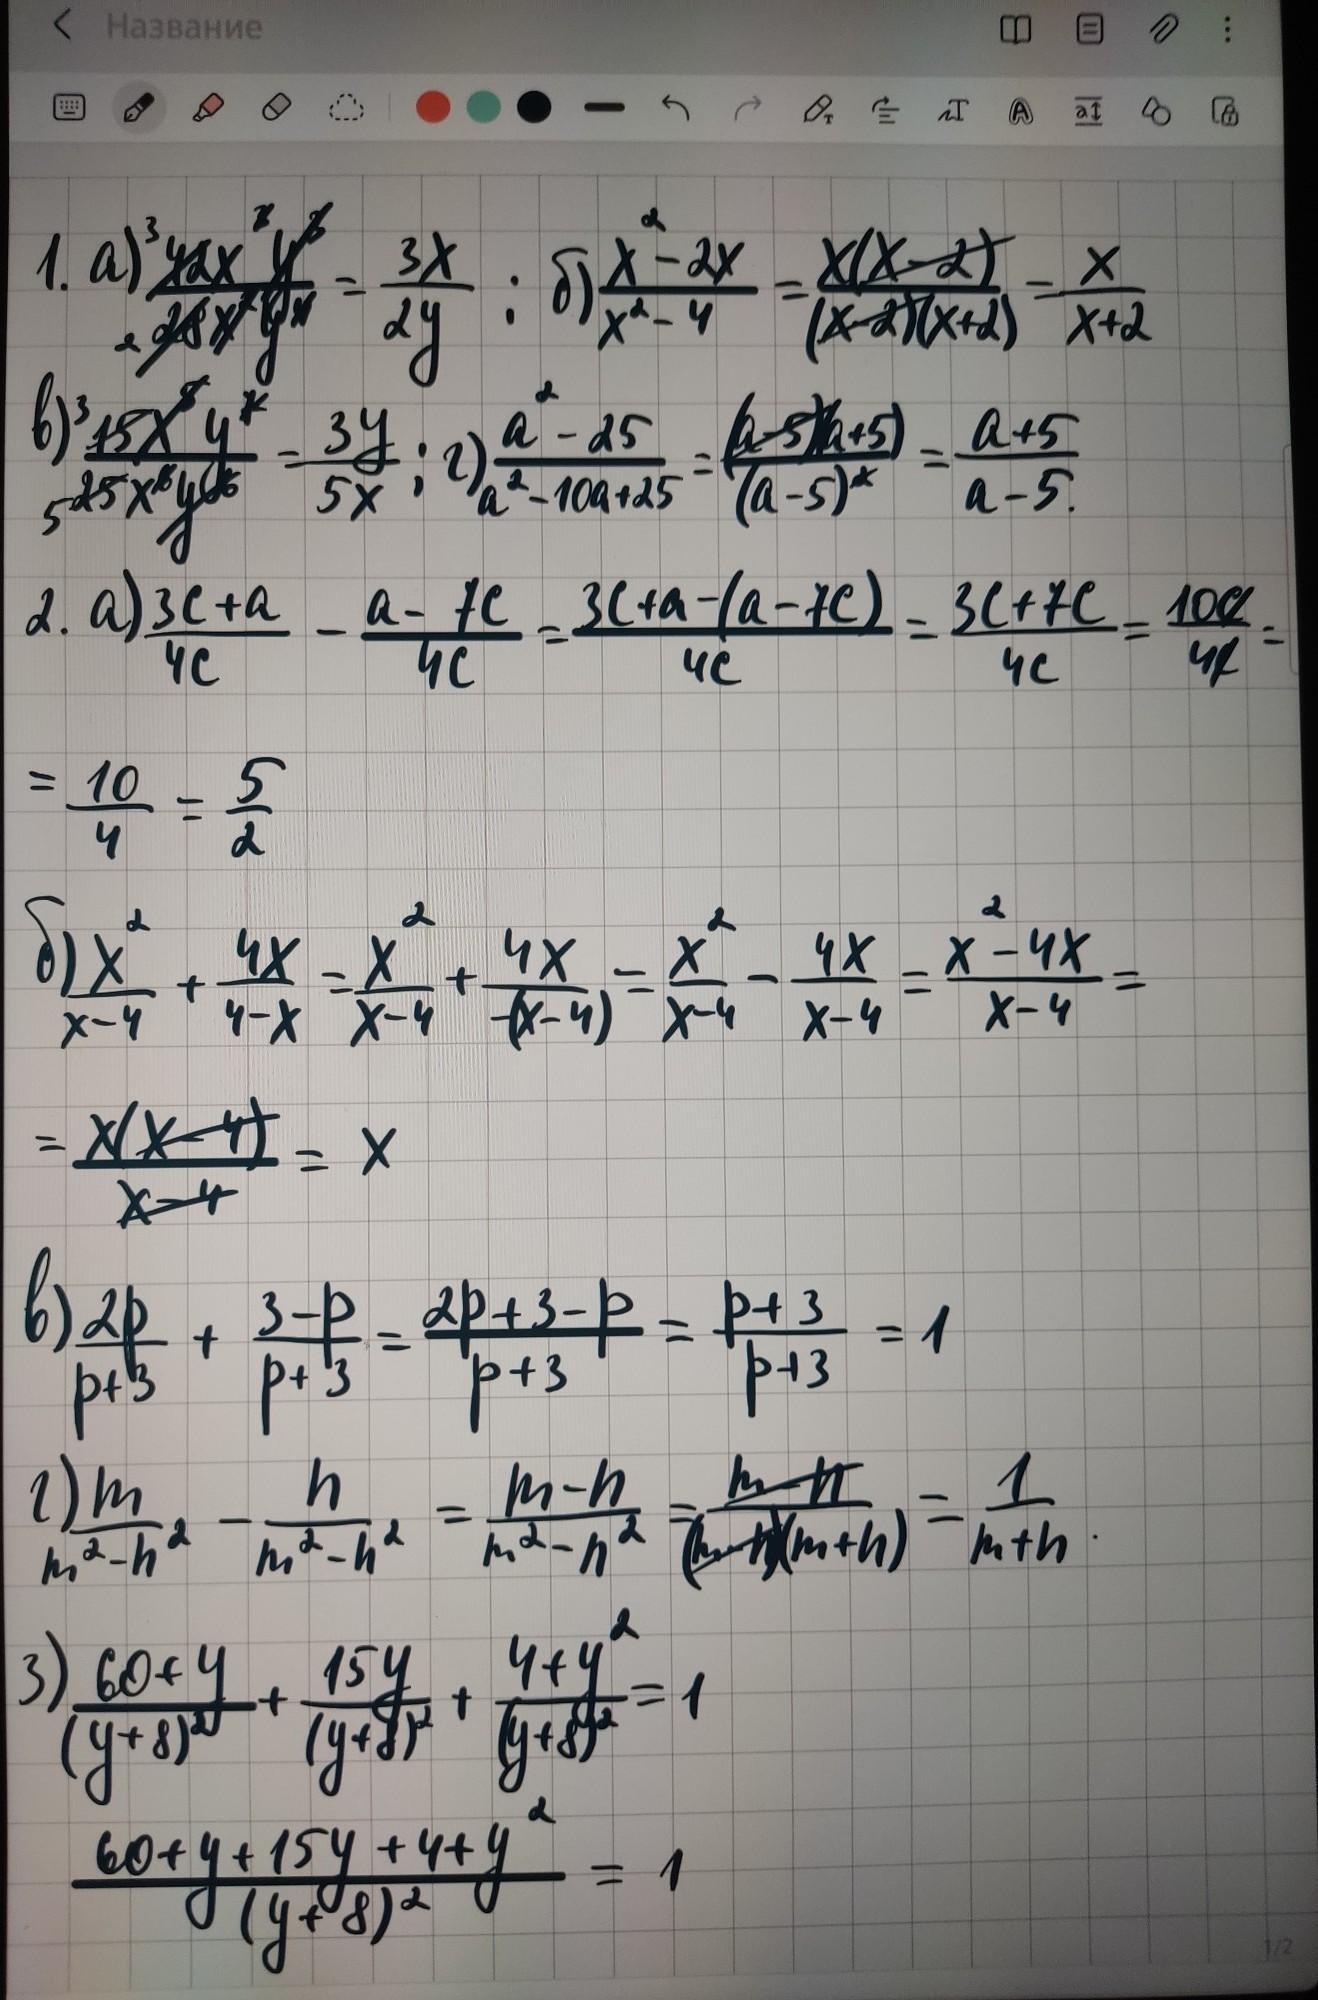 Название
1. а) = 3x/2y ; б) (x²-2x)/(x²-4) = x(x-2)/((x-2)(x+2)) = x/(x+2)
в) = 3y/5x ; г) (a²-25)/(a²-10a+25) = (a-5)(a+5)/(a-5)² = (a+5)/(a-5).
2. а) (3c+a)/4c - (a-7c)/4c = (3c+a-(a-7c))/4c = (3c+7c)/4c = 10c/4c =
= 10/4 = 5/2
б) x²/(x-4) + 4x/(4-x) = x²/(x-4) + 4x/(-(x-4)) = x²/(x-4) - 4x/(x-4) = (x²-4x)/(x-4) =
= x(x-4)/(x-4) = x
в) 2p/(p+3) + (3-p)/(p+3) = (2p+3-p)/(p+3) = (p+3)/(p+3) = 1
г) m/(m²-n²) - n/(m²-n²) = (m-n)/(m²-n²) = (m-n)/((m-n)(m+n)) = 1/(m+n).
3) (60+y)/(y+8)² + 15y/(y+8)² + (4+y²)/(y+8)² = 1
(60+y+15y+4+y²)/(y+8)² = 1
1/2